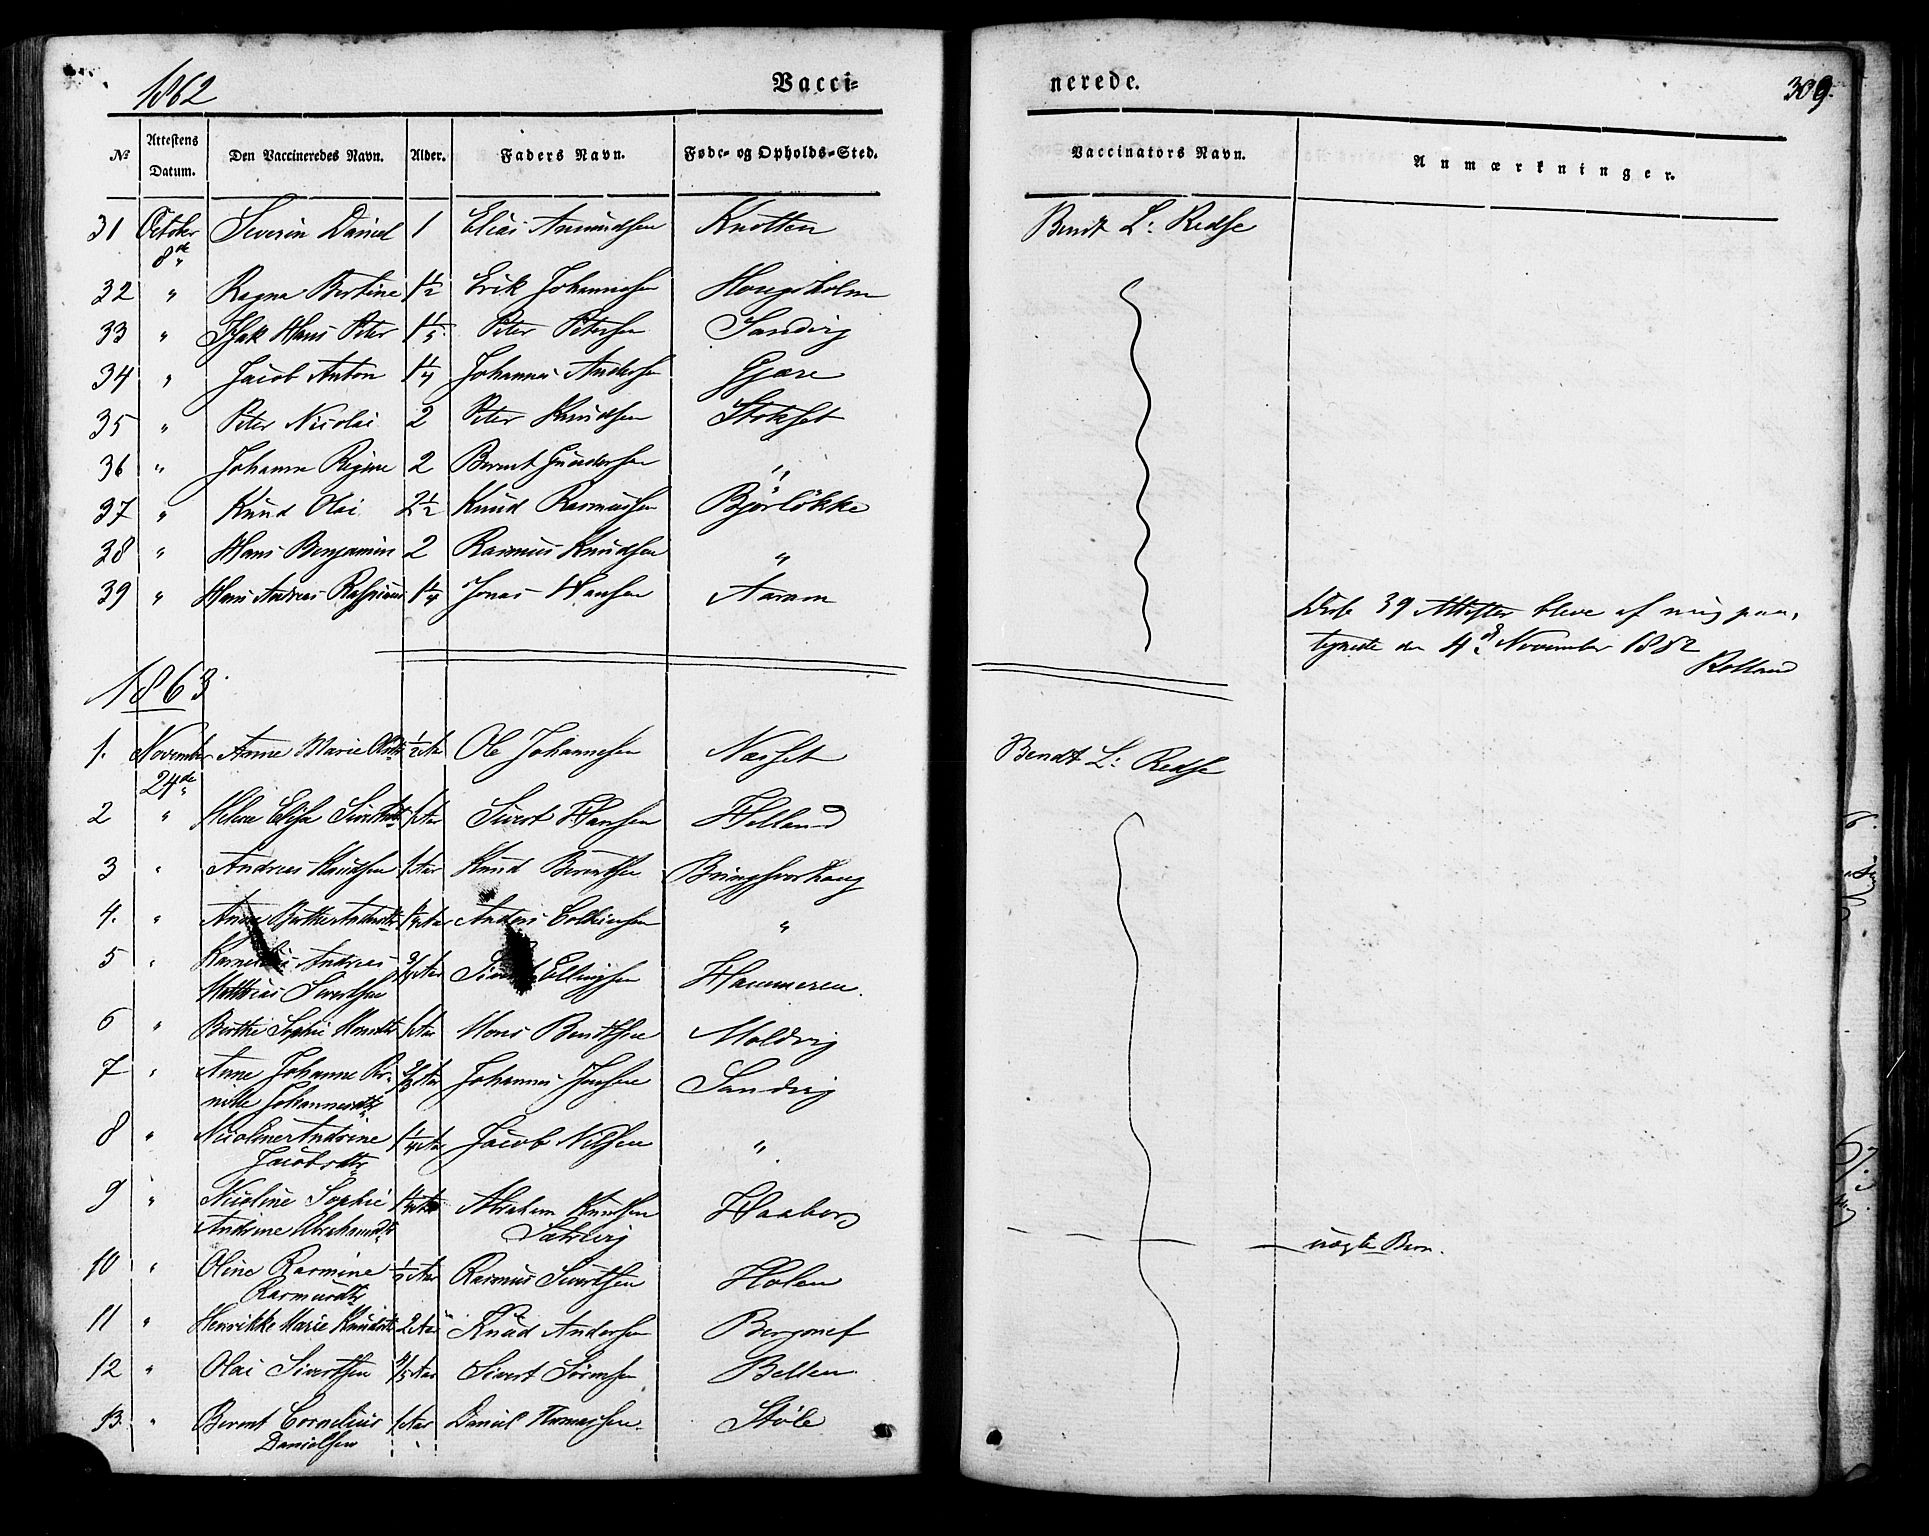 1862 Vacci= nerede. 309.
No Attestens Datum. Den Vaccineredes Navn. Alder. Faders Navn. Føde- og Opholds-Sted. Vaccinators Navn. Anmærkninger.
31 October 8de Severin Daniel 1 Elias Amundsen Knotten Bendt L: Redse
32 " Ragna Bertine 1½ Erik Johannesen Hougsholm
33 " Isak Hans Peter 1⅕ Peter Petersen Sandvig
34 " Jacob Anton 1¼ Johannes Andersen Gjære
35 " Peter Nicolai 2 Peter Knudsen Stokset
36 " Johanne Regine 2 Berent Gundersen "
37 " Knud Olai 2½ Knud Rasmussen Bjørløkke
38 " Hans Benjamin 2 Rasmus Knudsen "
39 " Hans Andreas 1¼ Jonas Hansen Aaram
Disse 39 Attester bleve af mig paa-
tegnede den 4de November 1862
Rolland
1863
1. November 24de Anne Marie Olsdtr ½ Aar Ole Johannesen Nasset Bendt L: Redse
2 " Helene Elisa Sivertsdtr 1 Aar Sivert Hansen Helland
3 " Andreas Knudsen 1 Aar Knud Berentsen Bringsvorhaug
4. " Anne Berthe Andersdtr ¼ Aar Anders "
5 " Kornelius Andreas
Matthias Sivertsen Aar Sivert Ellingsen Hammeren.
6 " Berthe Sophie Monsdtr 1 Aar Mons Bendtsen Moldvig
7 " Anne Johanne Per-
nille Johannesdtr ⅔ Aar Johannes Jensen Sandvig
8 " Nicoline Andrine
Jacobsdtr ¼ Aar Jacob Nilsen "
9 " Nicoline Sophie
Andrine Abrahamsdtr ¼ Aar Abraham Knudsen
Sætrevig Haaberg
10 " Oline Rasmine
Rasmusdtr ½ Aar Rasmus Sivertsen Holen uægte Barn.
11 " Henrikke Marie Knudsdtr 2 Aar Knud Andersen
12 " Olai Sivertsen Aar Sivert Sørensen Belten
13. " Berent Cornelius
Danielsen 1 Aar Daniel Thomassen. Støle